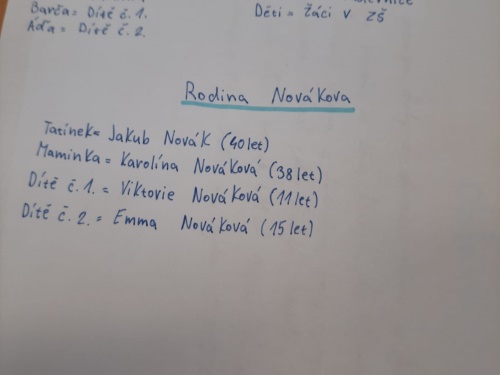 Barča = Dítě č. 1.
Áďa = Dítě č. 2.
Děti = Žáci v ZŠ
Rodina Novákova
Tatínek = Jakub Novák (40 let)
Maminka = Karolína Nováková (38 let)
Dítě č. 1. = Viktovie Nováková (11 let)
Dítě č. 2. = Emma Nováková (15 let)